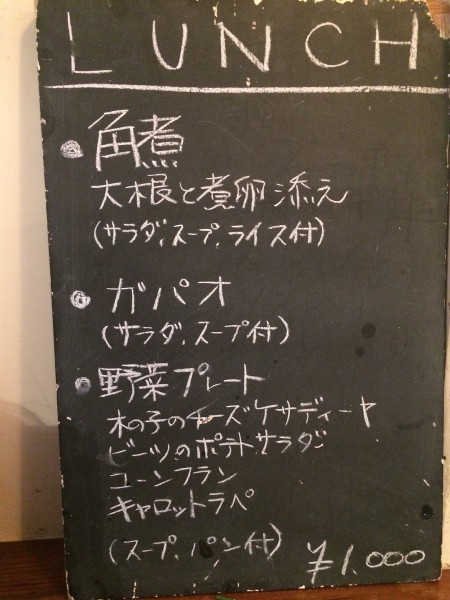 LUNCH
● 角煮
大根と煮卵添え
(サラダ、スープ、ライス付)
● ガパオ
(サラダ、スープ付)
● 野菜プレート
木の子のチーズケサディーヤ
ビーツのポテトサラダ
コーンフラン
キャロットラペ
(スープ、パン付)
¥1,000